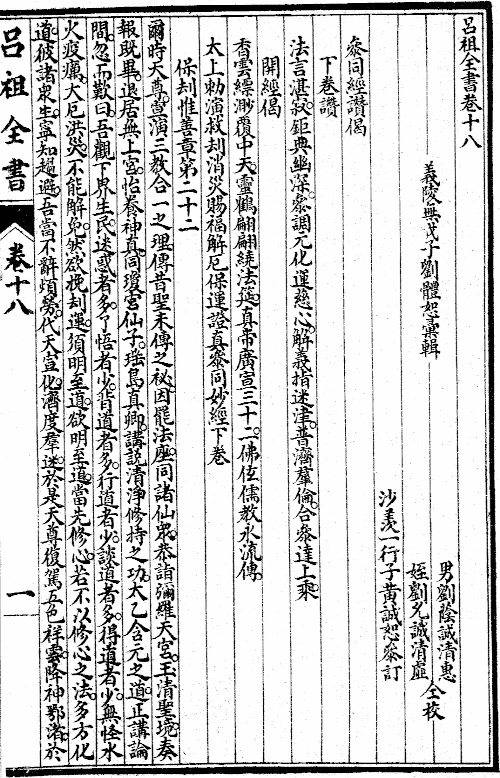 呂祖全書卷十八
義陵無我子劉體恕彙輯
男劉蔭誠清惠
姪劉允誠清虛
仝校
沙羨一行子黃誠恕叅訂
叅同經讚偈
下卷讚
法言湛寂鉅典幽深叅調元化運慈心解義指迷津普濟羣倫合叅達上乘
開經偈
香雲縹渺覆中天靈鶴翩翩繞法筵真常廣宣三十二佛仙儒教永流傳
太上勅演救刦消災賜福解厄保運證真叅同妙經下卷
保刦惟善章第二十二
爾時天尊宣演三教合一之理傳昔聖未傳之秘因罷法座同諸仙衆恭詣彌羅天宮玉清聖境奏
報旣畢退居無上宮怡養神真同瓊宮仙子瑤島真卿講說清淨修持之功太乙含元之道正講論
間忽而歎曰吾觀下界生民迷惑者多了悟者少背道者多行道者少談道者多得道者少無怪水
火疫癘大厄洪災不能解免然欲挽刦運須明至道欲明至道當先修心若不以修心之法多方化
導彼諸衆生寧知趨避吾當不辭煩勞代天宣化濟度羣迷於是天尊復駕五色祥雲降神鄂渚於
呂祖全書
卷十八
一